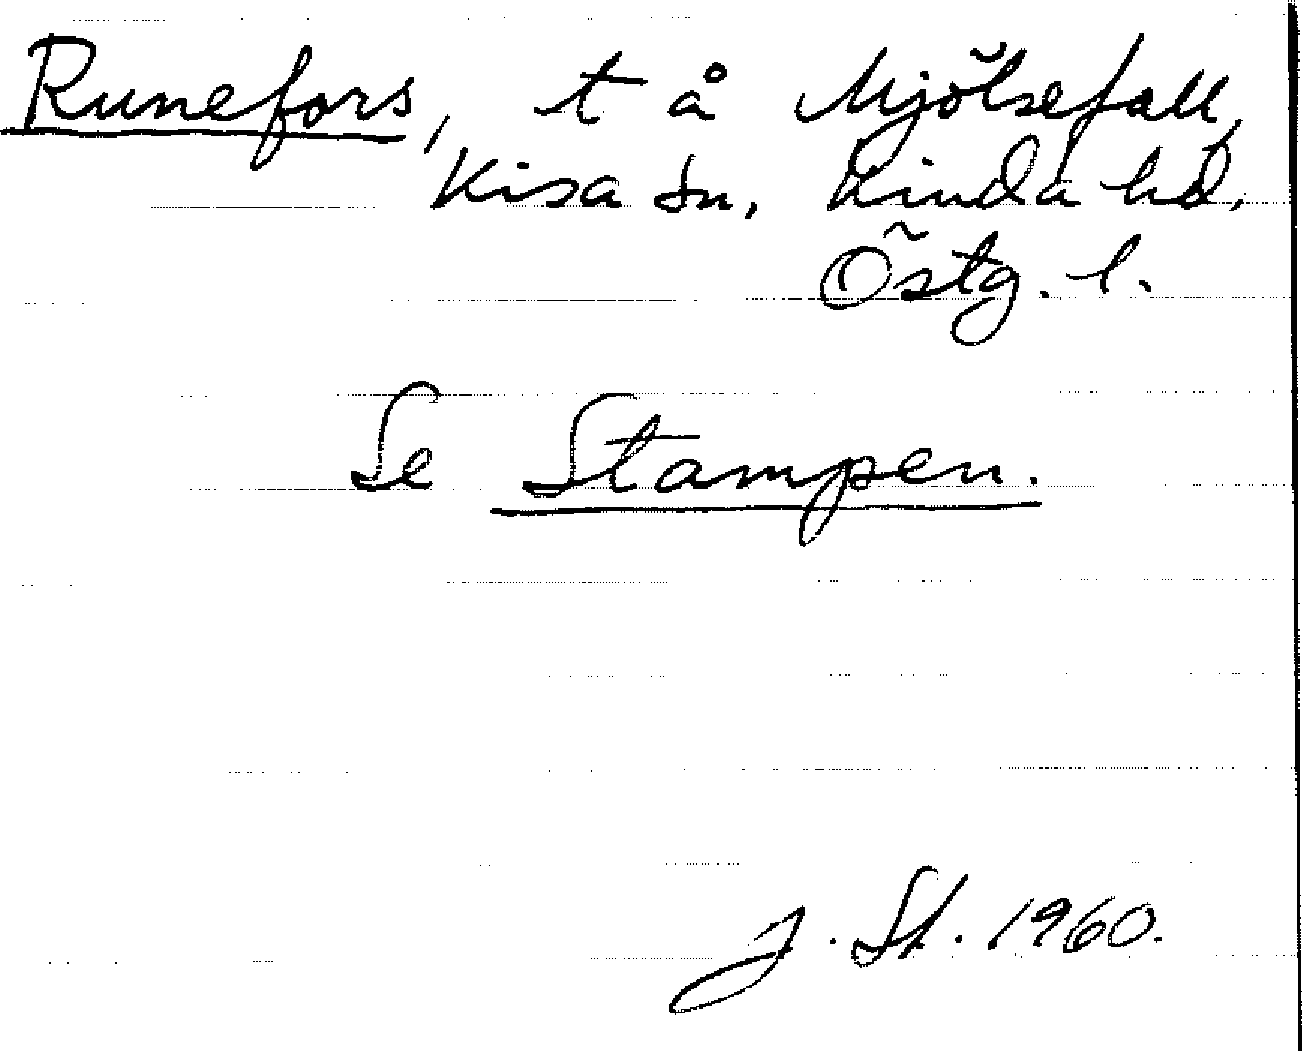 Runefors, t å Mjölsefall,
Kisa sn, Kinda hd,
Östg. l.
Se Stampen.
J. St. 1960.